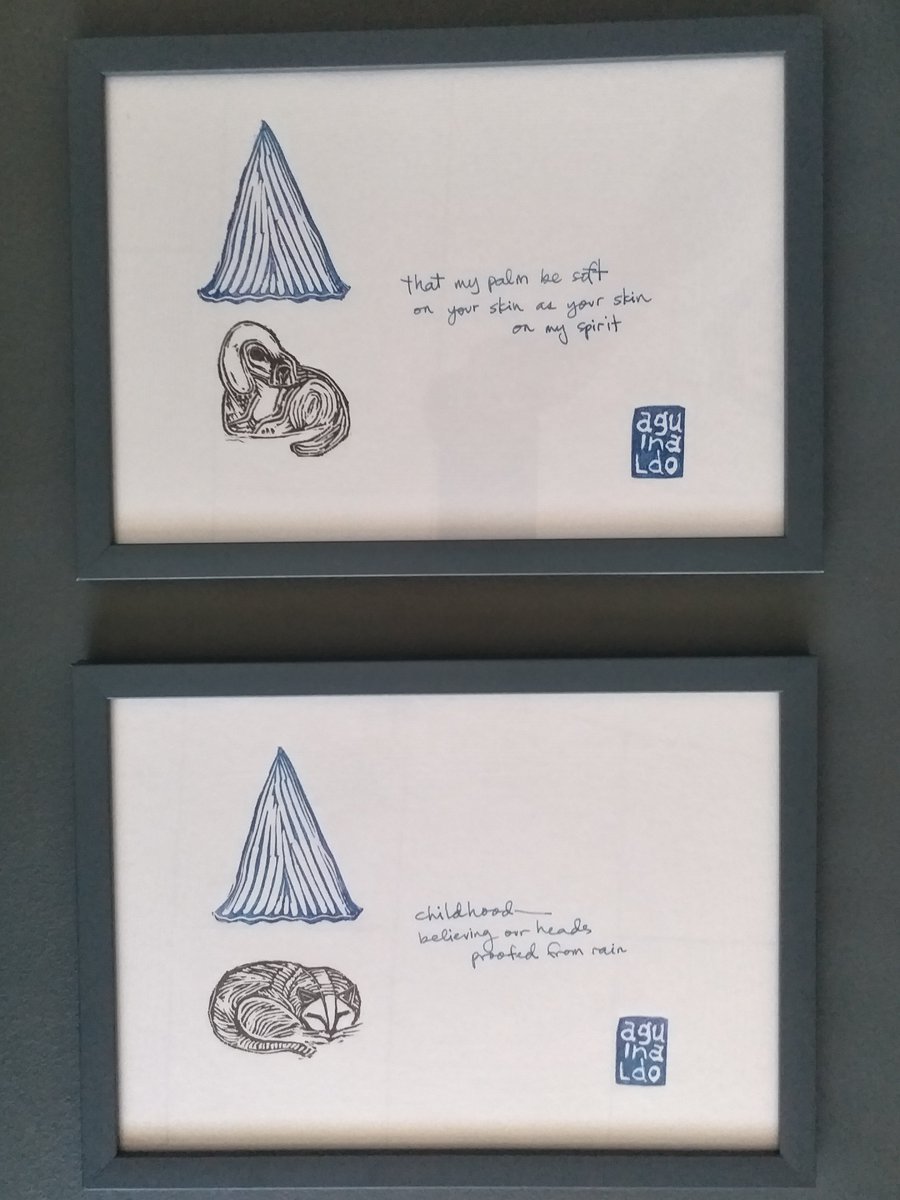 that my palm be soft
on your skin as your skin
on my spirit
agu
ina
Ldo
childhood—
believing our heads
proofed from rain
agu
ina
Ldo